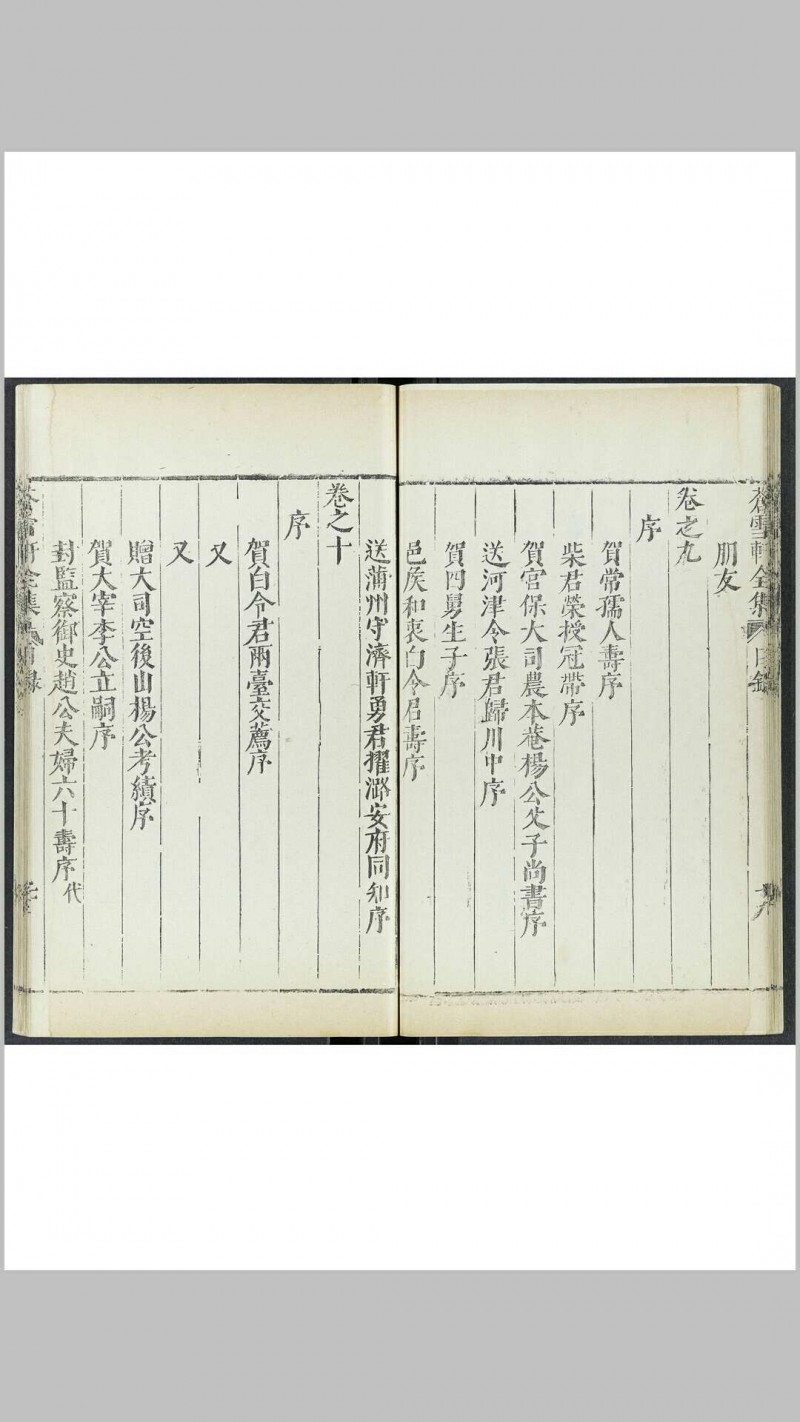 蒼雪軒全集 目錄
朋友
卷之九
序
賀常孺人壽序
柴君榮授冠帶序
賀宮保大司農本菴楊公父子尚書序
送河津令張君歸川中序
賀四舅生子序
邑矦和衷白令君壽序
送蒲州守濟軒勇君擢潞安府同知序
卷之十
序
賀白令君兩臺交薦序
又
又
贈大司空後山楊公考績序
賀大宰李公立嗣序
封監察御史趙公夫婦六十壽序 代
蒼雪軒全集 目錄